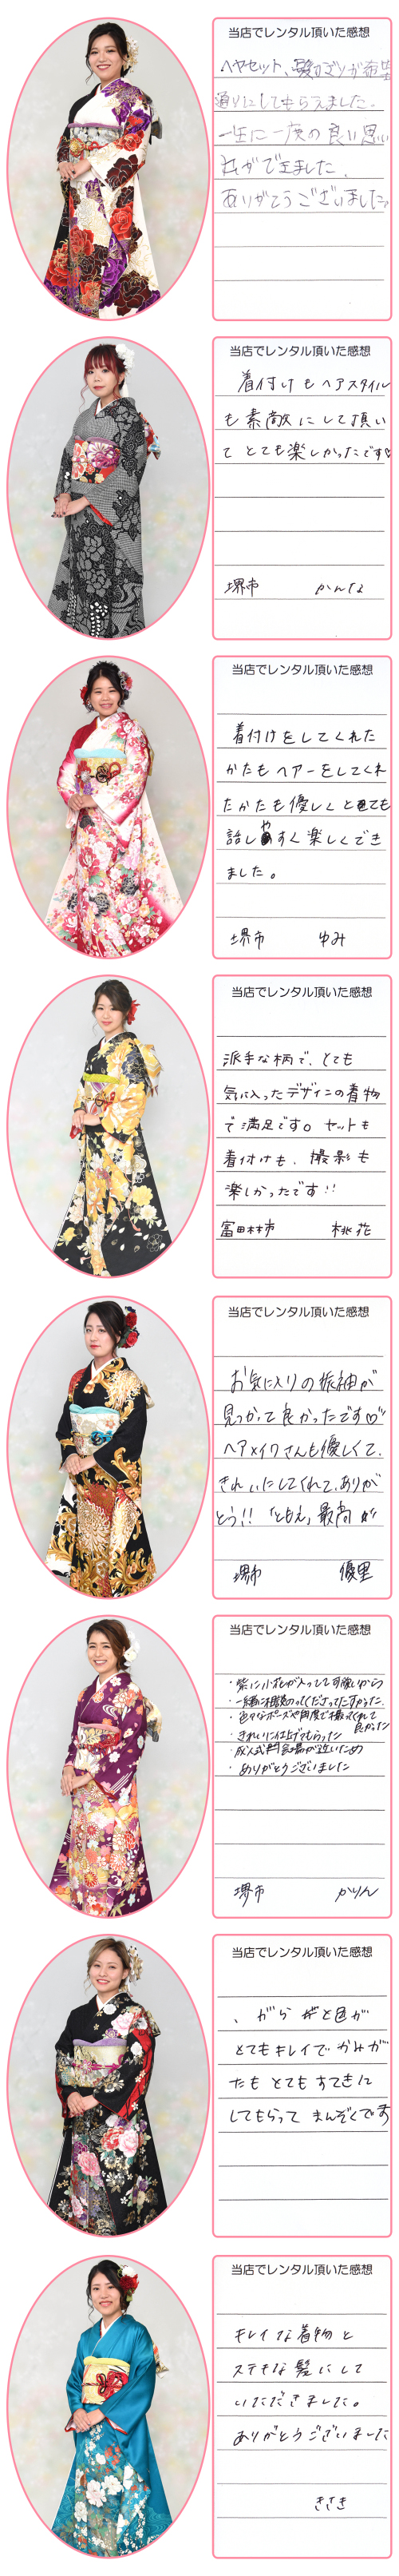 当店でレンタル頂いた感想
ヘヤセット、髪かざりが希望
通りにしてもらえました。
一生に一度の良い思い
出ができました、
ありがとうございました。
当店でレンタル頂いた感想
着付けもヘアスタイル
も素敵にして頂い
てとても楽しかったです♡
堺市 かんな
当店でレンタル頂いた感想
着付けをしてくれた
かたもヘアーをしてくれ
たかたも優しくとても
話しやすく楽しくでき
ました。
堺市 ゆみ
当店でレンタル頂いた感想
派手な柄で、とても
気に入ったデザインの着物
で満足です。セットも
着付けも、撮影も
楽しかったです!!
富田林市 桃花
当店でレンタル頂いた感想
お気に入りの振袖が
見つかって良かったです♡
ヘアメイクさんも優しくて、
きれいにしてくれて、ありが
とう!!「ともえ」最高
堺市 優里
当店でレンタル頂いた感想
・紫に小花が入ってて可愛いから
・一緒に相談のってくださってたすかった。
・色々なポーズや角度で撮ってくれて
良かった
・きれいに仕上げてもらった
成人式 会場が近いため
・ありがとうございました
堺市 かりん
当店でレンタル頂いた感想
、がらと色が
とてもキレイでかみが
たもとてもすてきに
してもらってまんぞくです
当店でレンタル頂いた感想
キレイな着物と
ステキな髪にして
いただきました。
ありがとうございました
きさき